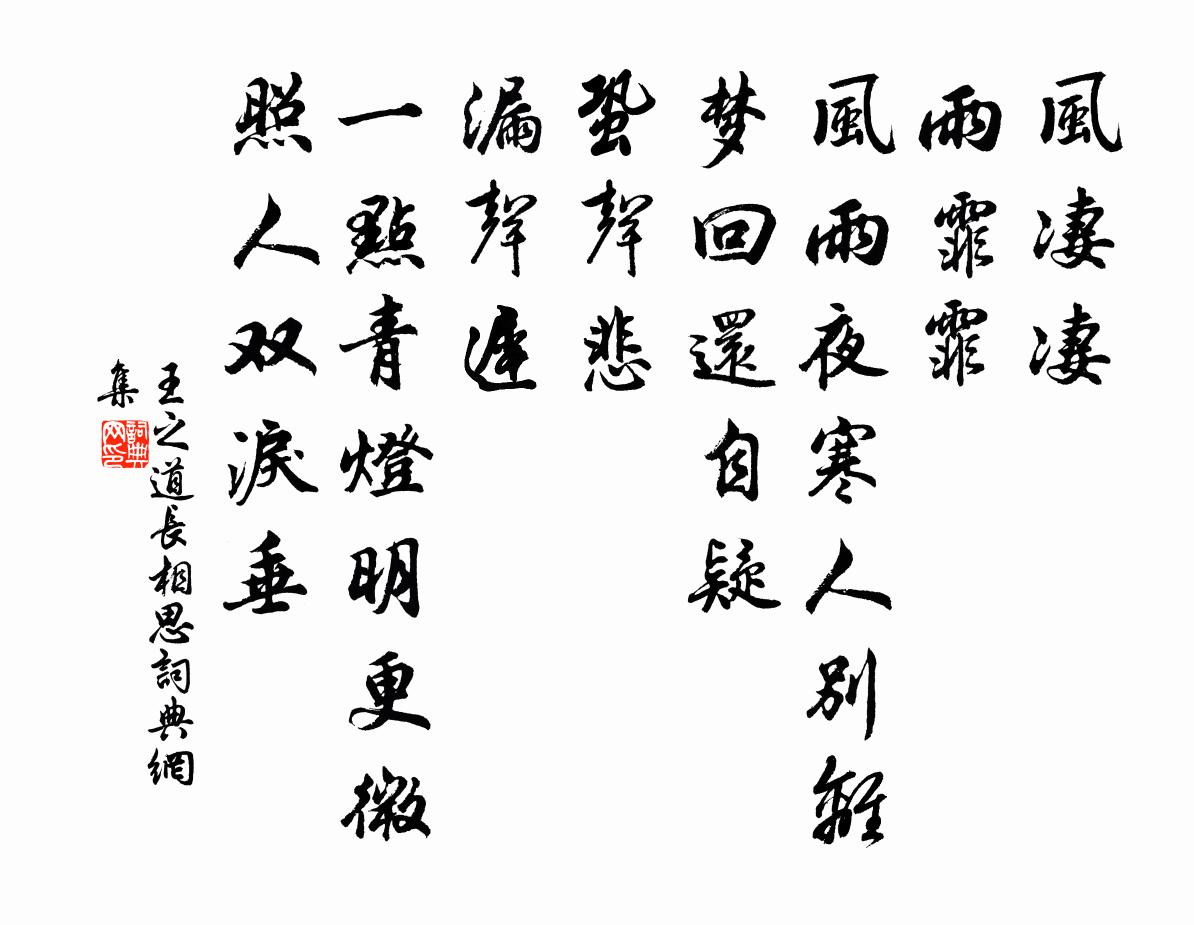 風淒淒
雨霏霏
風雨夜寒人別離
梦回還自疑
蛩聲悲
漏聲遲
一點青燈明更微
照人双淚垂
王之道長相思詞典網
集
詞典网印